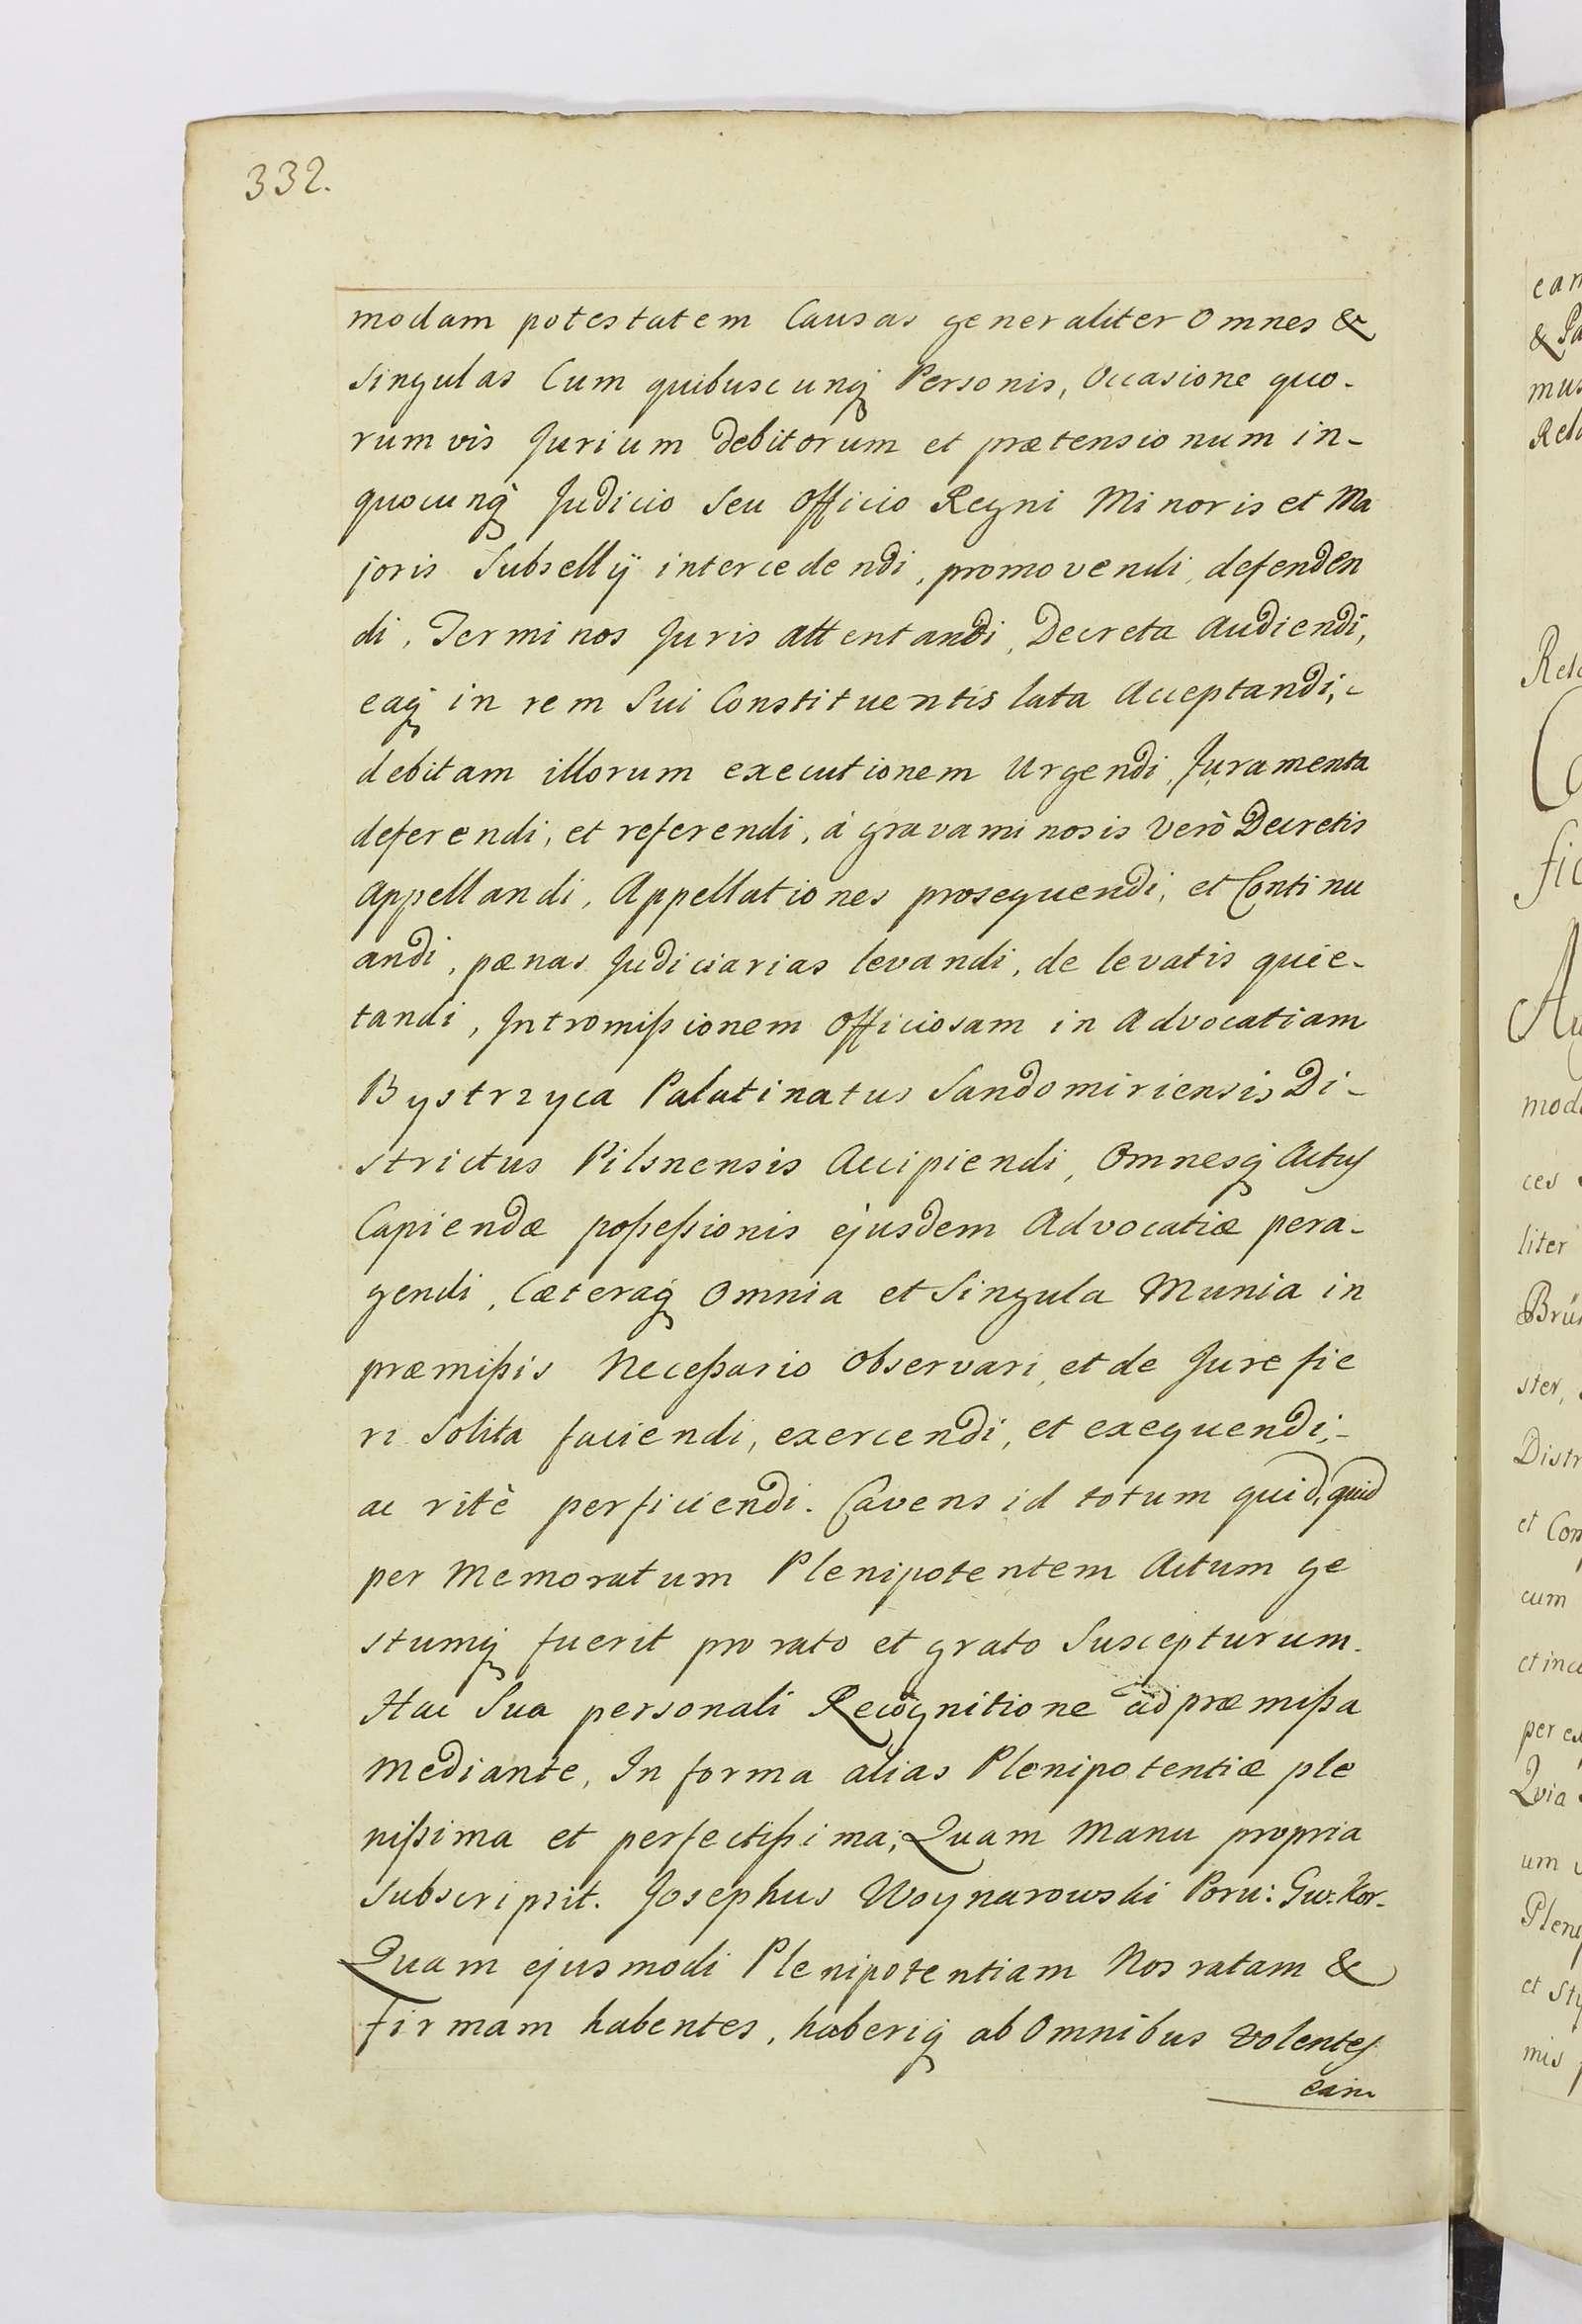 332.
modam potestatem Causas generaliter Omnes &
Singulas Cum quibuscunq Personis, Occasione quo-
rumvis Jurium Debitorum et prætensionum in-
quocunq Judicio Seu Officio Regni Minoris et Ma
joris Subsellÿ intercedendi, promovendi, defenden
di, Terminos Juris attentandi, Decreta Audiendi,
eaq in rem Sui Constituentis lata Acceptandi,
debitam illorum executionem Urgendi, Juramenta
deferendi, et referendi, à gravaminosis Verò Decretis
Appellandi, Appellationes prosequendi, et Continu
andi, pænas Judiciarias levandi, de levatis quie-
tandi, Intromißionem Officiosam in Advocatiam
Bystrzyca Palatinatus Sandomiriensis Di-
strictus Pilsnensis Accipiendi, Omnesq Actus
Capiendæ poßeßionis ejusdem Advocatiæ pera-
gendi, Cæteraq Omnia et Singula Munia in
præmißis Neceßario Observari, et de Jure fie
ri Solita faciendi, exercendi, et exequendi,-
ac ritè perficiendi. Cavens id totum quid,quid
per Memoratum Plenipotentem Actum ge
stumq fuerit pro rato et grato Suscepturum.
Hac Sua personali Recognitione ad præmißa
Mediante, In forma alias Plenipotentiæ ple
nißima et perfectißima; Quam Manu propria
Subscripsit. Josephus Woynarowski Poru: Gw. Kor.
Quam ejusmodi Plenipotentiam Nos ratam &
firmam habentes, haberiq ab Omnibus Volentes
eam
& Pa
mus
Rela
Rela
fic
mod
ces
liter
Brü
ster,
Distr
et Con
cum
et ince
per
Qvia
um
Pleni
et
mis